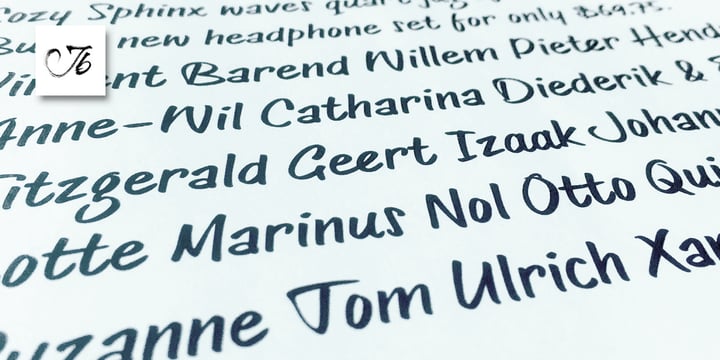 Cozy Sphinx waves quart jug
new headphone set for only $69.75.
Barend Willem Pieter Hend
Anne-Wil Catharina Diederik &
Fitzgerald Geert Izaak Johann
otte Marinus Nol Otto Qui
Suzanne Tom Ulrich Xan